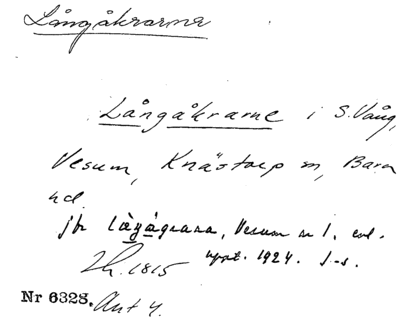 Långåkrarna
Långåkrarne i S. Vång,
Vesum, Knästorp sn, Bara
hd.
jfr lågagrana, Vesum nr 1. enl.
uppt. 1924. I-s.
Lh. 1815
Nr 6328. Ant 4.